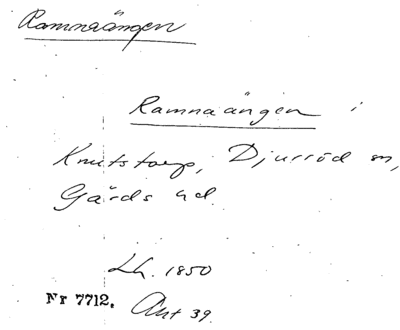 Ramnaängen
Ramnaängen i
Knutstorp, Djurröd sn,
Gärds hd.
Lh. 1850
Nr 7712. Akt 39